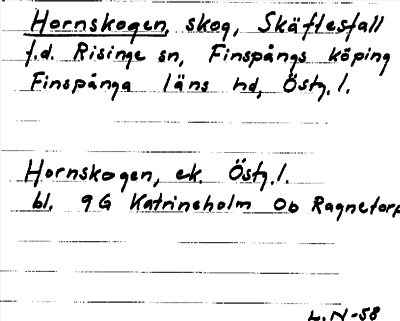 Hornskogen, skog, Skäftesfall
f.d. Risinge sn, Finspångs köping
Finspånga läns hd, Östg. l.
Hornskogen, ek. Östg. l.
bl. 9G Katrineholm Ob Ragnetorp
L.N-58